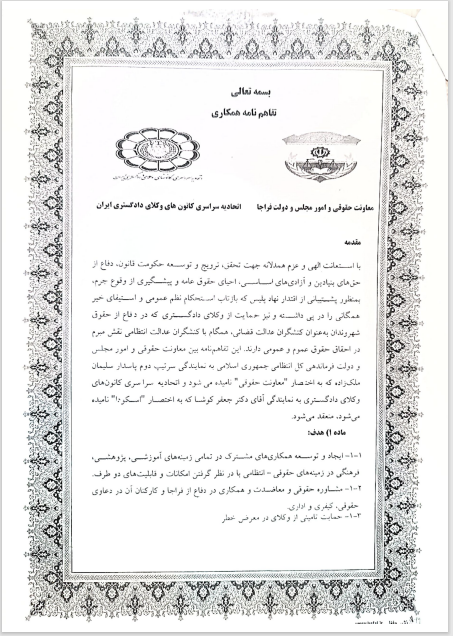 بسمه تعالی
تفاهم نامه همکاری
معاونت حقوقی و امور مجلس و دولت فراجا
اتحادیه سراسری کانون های وکلای دادگستری ایران
مقدمه
با استعانت الهی و عزم همدلانه جهت تحقق، ترویج و توسعه حکومت قانون، دفاع از
حق‌های بنیادین و آزادی‌های اساسی، احیای حقوق عامه و پیشگیری از وقوع جرم،
بمنظور پشتیبانی از اقتدار نهاد پلیس که بازتاب استحکام نظم عمومی و استیفای خیر
همگانی را در پی داشته و نیز حمایت از وکلای دادگستری که در دفاع از حقوق
شهروندان به‌عنوان کنشگران عدالت قضائی، همگام با کنشگران عدالت انتظامی نقش مبرم
در احقاق حقوق عموم و عمومی دارند. این تفاهم‌نامه بین معاونت حقوقی و امور مجلس
و دولت فرماندهی کل انتظامی جمهوری اسلامی به نمایندگی سرتیپ دوم پاسدار سلیمان
ملک‌زاده که به اختصار "معاونت حقوقی" نامیده می شود و اتحادیه سراسری کانون‌های
وکلای دادگستری به نمایندگی آقای دکتر جعفر کوشا که به اختصار "اسکودا" نامیده
می‌شود، منعقد می‌شود.
ماده ۱) هدف:
۱-۱- ایجاد و توسعه همکاری‌های مشترک در تمامی زمینه‌های آموزشی، پژوهشی،
فرهنگی در زمینه‌های حقوقی - انتظامی با در نظر گرفتن امکانات و قابلیت‌های دو طرف.
۱-۲- مشاوره حقوقی و معاضدت و همکاری در دفاع از فراجا و کارکنان آن در دعاوی
حقوقی، کیفری و اداری.
۱-۳- حمایت تامینی از وکلای در معرض خطر